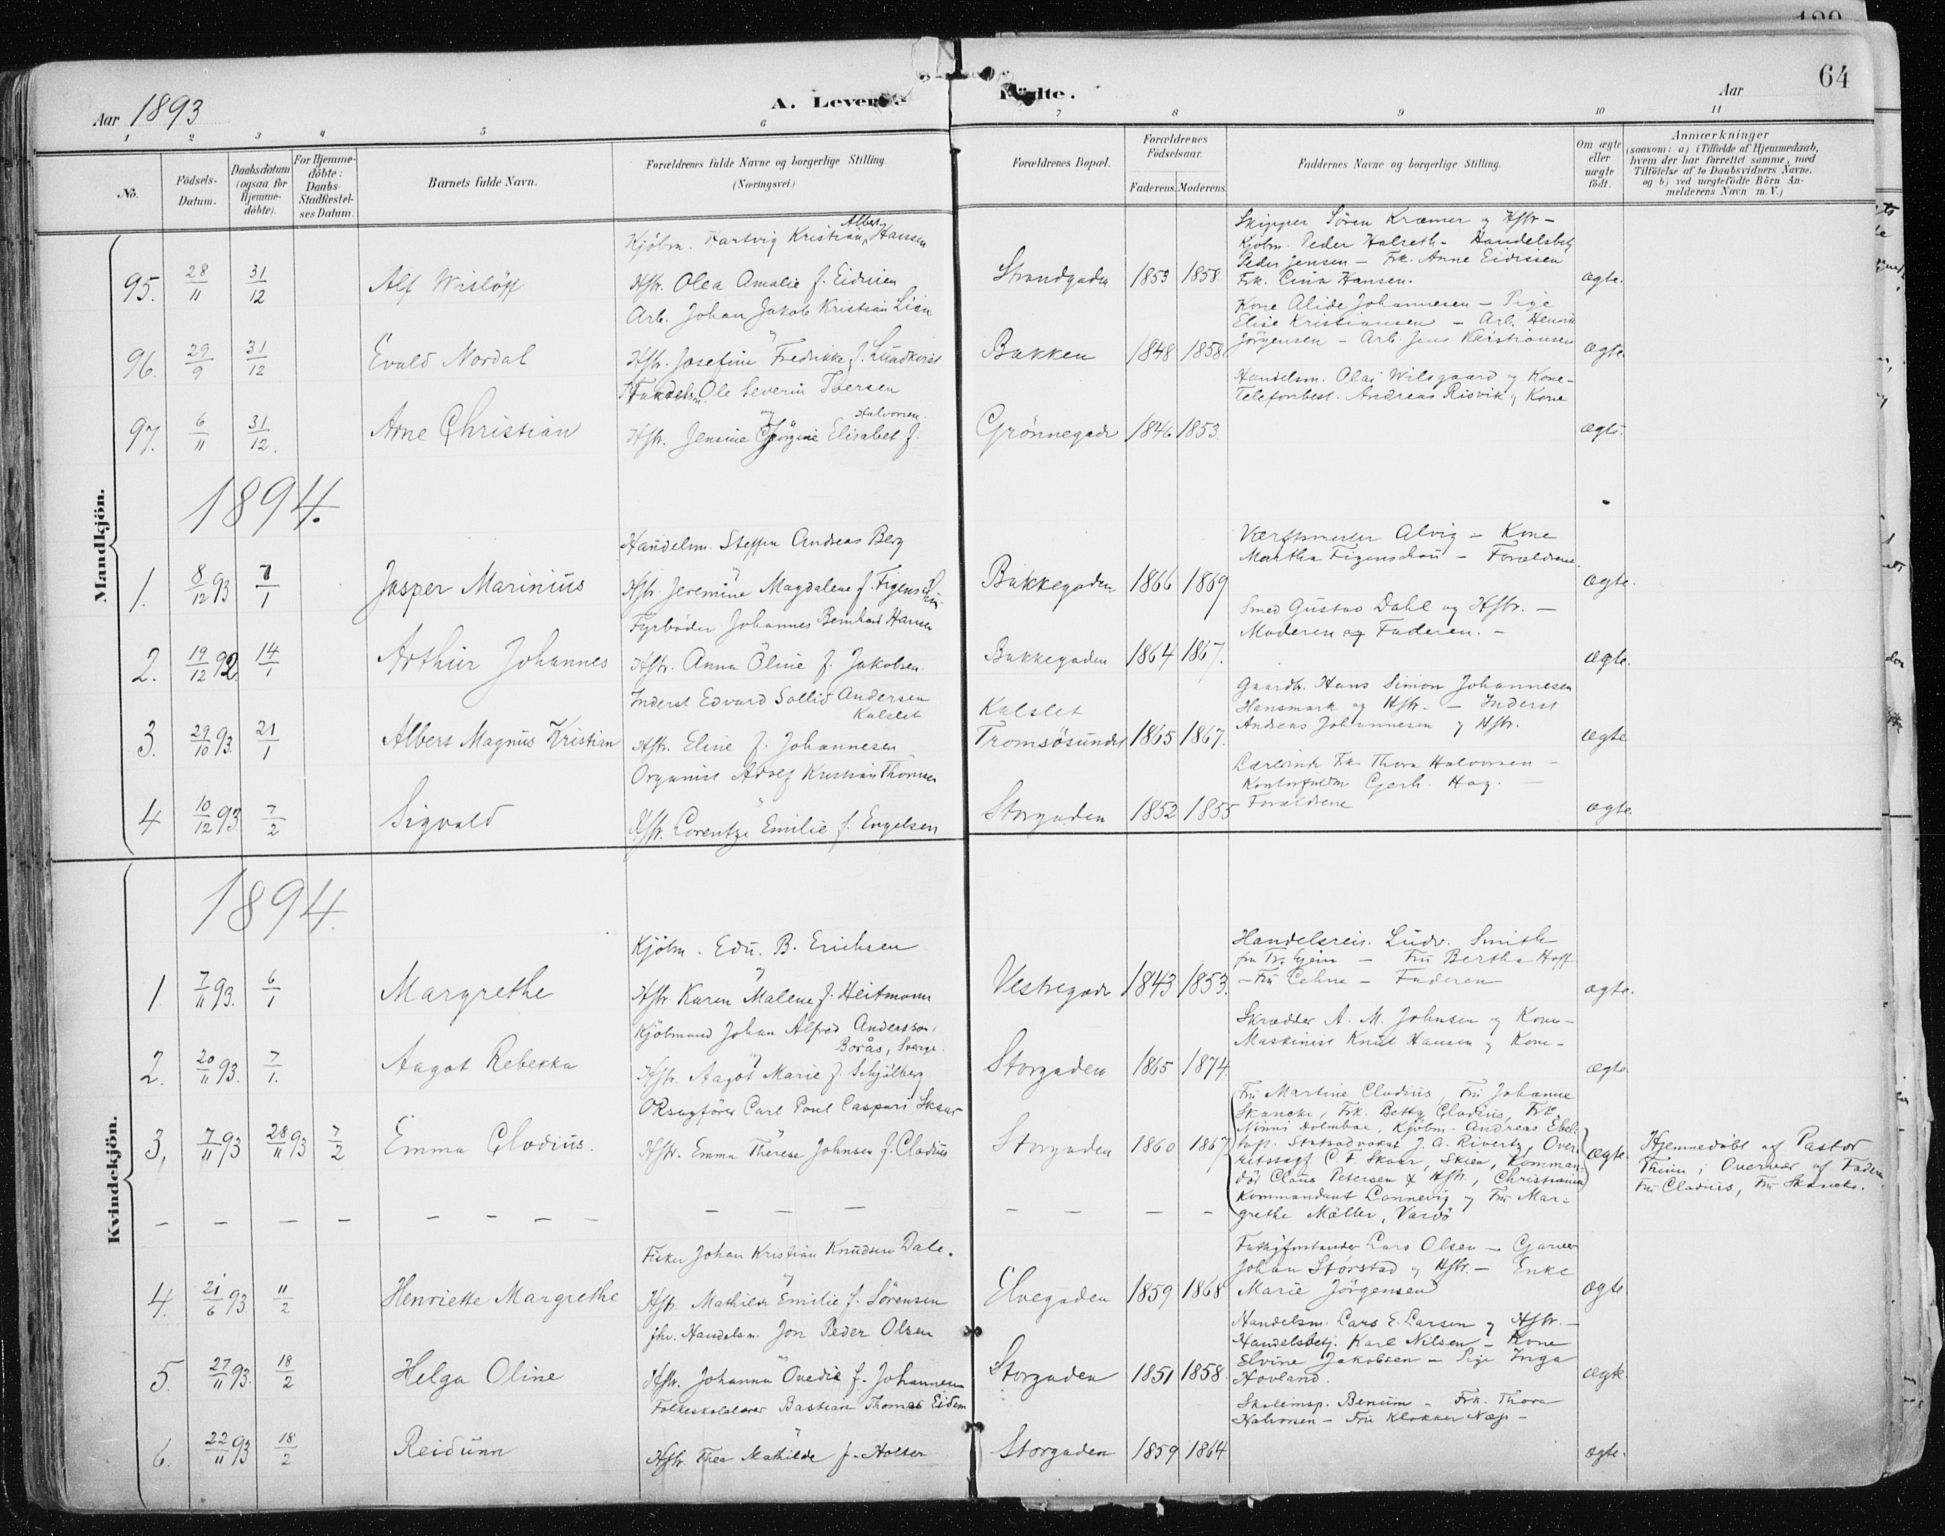 64
Aar 1893
A. Levende Fødte.
Aar
1 2 3 4 5 6 7 8 9 10 11
No.
Fødsels-Datum.
Daabsdatum (ogsaa for Hjemmedøbte).
For Hjemmedøbte: Daabs-Stadfestelses Datum.
Barnets fulde Navn.
Forældrenes fulde Navne og borgerlige Stilling. (Næringsvei.)
Forældrenes Bopæl.
Forældrenes Fødselsaar.
Faderens. Moderens.
Faddernes Navne og borgerlige Stilling.
Om ægte eller uægte født.
Anmærkninger
(saasom: a) i Tilfælde af Hjemmedaab, hvem der har forrettet samme, med Tilføielse af to Daabsvidners Navne, og b) ved uægtefødte Børn Anmelderens Navn m. V.)
Mandkjøn.
95. 28/11 31/12 Alf Wisløff
Kjøbm. Hartvig Kristian Albert Hansen
Hstr. Olea Amalie f. Eidissen
Strandgaden 1853 1858
Skipper Sören Kræmer og Hstr –
Kjöbm. Peder Halseth – Handelsbetj.
Peder Jensen – Frk. Anne Eidissen
Frk. Lina Hansen.
ægte.
96. 29/9 31/12 Evald Nordal
Arb. Johan Jakob Kristian Lien
Hstr. Josefine Fredrikke f. Lundkvist
Bakken 1848 1858
Kone Alide Johannesen – Pige
Elise Kristiansen – Arb. Henrik
Jörgensen – Arb. Jens Kristiansen
ægte.
97. 6/11 31/12. Arne Christian
Handelsm. Ole Severin Iversen
Hstr. Jensine Jörgine Elisabet f. Halvorsen.
Grönnegade 1846 1853.
Handelsm. Olai Wilsgaard og Kone –
Telefonbest. Andreas Risvik og Kone
ægte.
1894.
1. 8/12 93 7/1 Jasper Marinius
Handelsm. Steffen Andreas Berg
Hstr. Jeremine Magdalene f. Figenschou.
Bakkegaden 1866 1869
Værftsmester Alvig – Kone
Martha Figenschou – Forældrene
ægte.
2. 19/12 92 14/1 Arthur Johannes
Fyrböder Johannes Bernhard Hansen
Hstr. Anna Oline f. Jakobsen
Bakkegaden 1864 1867.
Smed Gustav Dahl og Hstr. –
Moderen og Faderen. –
ægte.
3. 29/10 93. 21/1 Albert Magnus Kristian
Inderst Edvard Sollid Andersen
Kalslet
Hstr. Eline f. Johannesen
Kalslet
Tromsösundet 1865 1867.
Gaardb. Hans Simon Johannesen
Hansmark og Hstr. – Inderst
Andreas Johannesen og Hstr.
ægte
4 10/12 93. 7/2 Sigvald
Organist Adolf Kristian Thomsen
Hstr. Lorentze Emilie f. Engelsen
Storgaden 1852 1855
Lærerinde Frk. Thora Halvorsen –
Kontorfuldm. Gerh. Hag. –
Forældrene
ægte.
Kvindekjøn.
1894.
1 7/11 93. 6/1 Margrethe
Kjöbm. Edv. B. Erichsen
Hstr Karen Malene f. Heitmann
Vestregade 1843 1853.
Handelsreis. Ludv. Smith
fra Tr.hjem – Fru Bertha Hoff
– Fru Cehne – Faderen
ægte.
2. 20/11 93. 7/1. Aagot Rebekka
Kjöbmand Johan Alfred Andersson,
Borås, Sverge.
Hstr. Aagot Marie f. Schjölberg
Storgaden 1865 1874
Skrædder A. M. Johnsen og Kone –
Maskinist Knut Hansen og Kone –
ægte.
3, 7/11 93 28/11 93 7/2 Emma Clodius.
ORsagförer Carl Poul Caspari Skaar
Hstr. Emma Therese Johnsen f. Clodius
Storgaden 1860 1867
Fru Martine Clodius, Fru Johanne
Skancke, Frk. Betty Clodius, Frk.
Ninni Holmboe, Kjöbm. Andreas Ebel-
toft. Statsadvokat J. A. Rivertz, Over-
retssagf C. F. Skaar, Skien, Komman-
dör Claus Petersen & Hstr, Christiania
Kommandant Lonnevig og Fru Mar-
grethe Möller, Vardö
ægte.
Hjemmedöbt af Pastor
Thiim i Overvær af Faderen,
Fru Clodius, Fru Skancke.
4. 21/6 93. 11/2 Henriette Margrethe
Fisker Johan Kristian Knudsen Dale.
Hstr. Mathilde Emilie f. Sörensen
Elvegaden 1859 1868
Fattigforstander Lars Olsen – Garver
Johan Störstad og Hstr. – Enke
Marie Jörgensen
ægte.
5. 27/11 93. 18/2 Helga Oline
fhv. Handelsm. Jon Peder Olsen
Hstr. Johanna Ovedie f. Johannesen
Storgaden 1851 1858.
Handelsm. Lars E. Larsen og Hstr. –
Handelsbetj. Karl Nilsen – Kone
Elvine Jakobsen – Pige Inga
Hovland.
ægte.
6. 22/11 93 18/2 Reidunn
Folkeskolelærer Bastian Thomas Eidem
Hstr. Thea Mathilde f. Holter
Storgaden 1859 1864
Skoleinsp. Benum – Frk. Thora
Halvorsen – Fru Klokker Næss –
ægte.